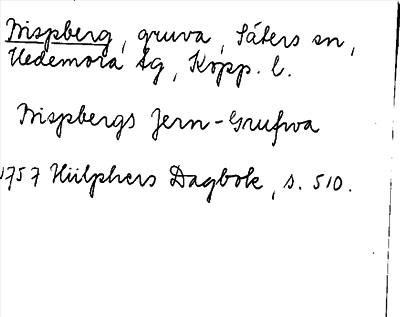 Bispberg, gruva, Säters sn,
Hedemora tg, Kopp. l.
Bispbergs Jern-Grufwa
1757 Hülphers Dagbok, s. 510.